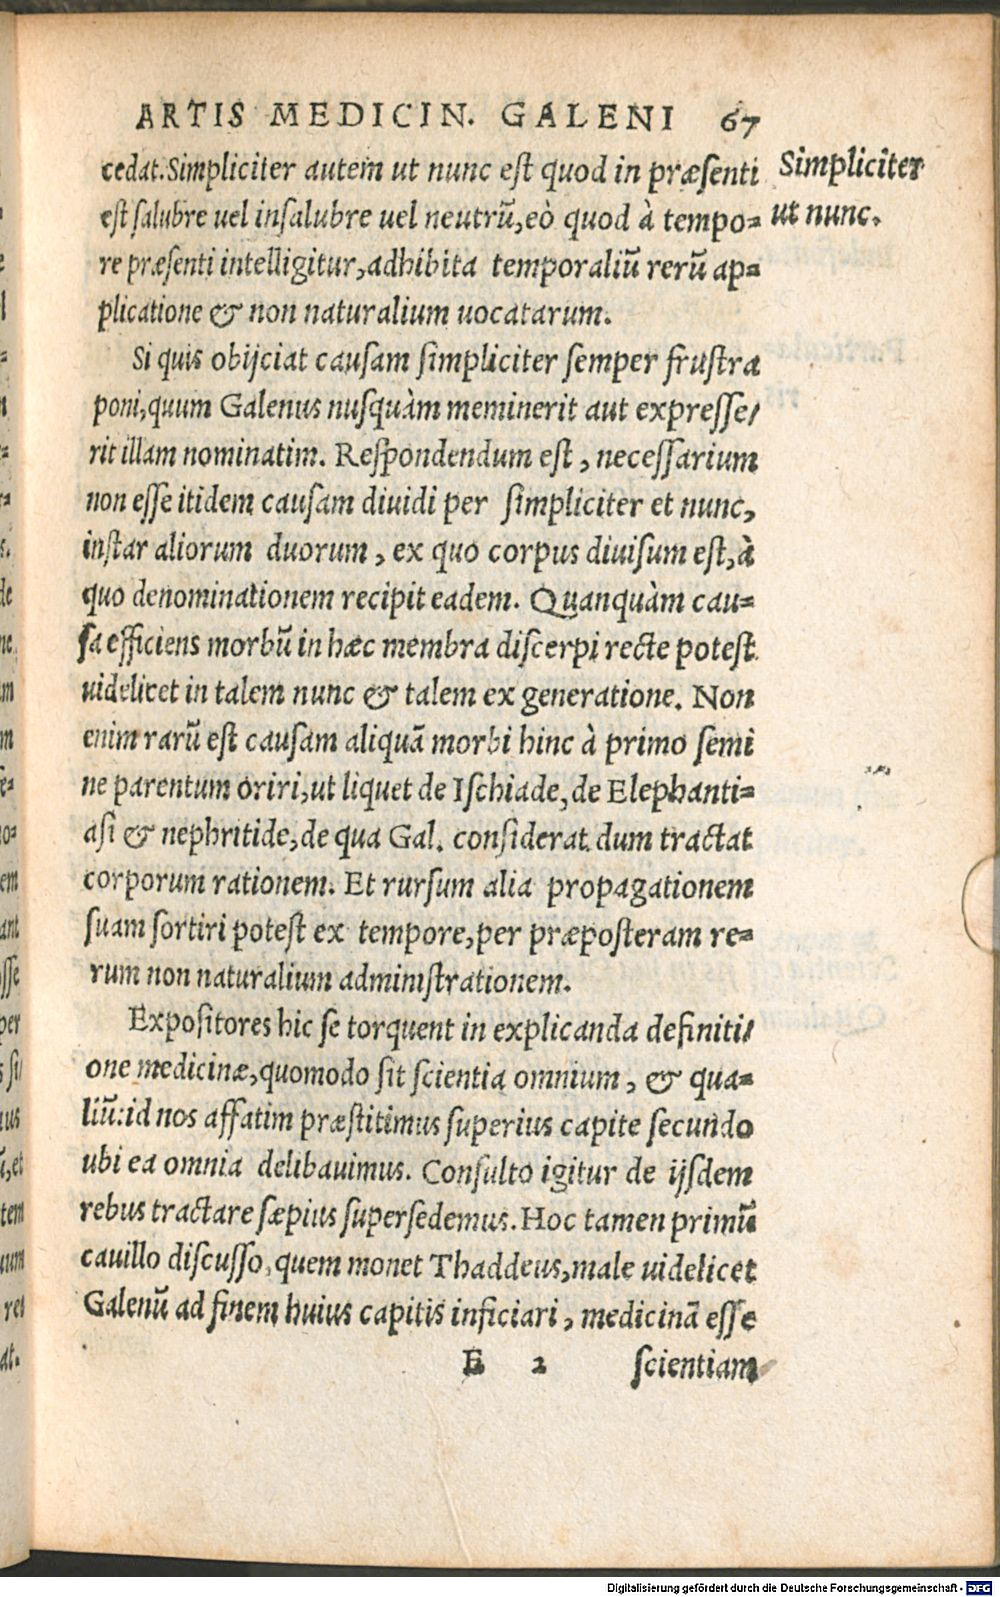 ARTIS MEDICIN. GALENI 67
cedat. Simpliciter autem ut nunc est quod in præsenti
Simpliciter
est salubre uel insalubre uel neutrũ, eò quod à tempo⸗
ut nunc.
re præsenti intelligitur, adhibita temporaliũ rerũ ap⸗
plicatione & non naturalium uocatarum.
Si quis obijciat causam simpliciter semper frustra
poni, quum Galenus nusquàm meminerit aut expresse/
rit illam nominatim. Respondendum est, necessarium
non esse itidem causam diuidi per simpliciter et nunc,
instar aliorum duorum, ex quo corpus diuisum est, à
quo denominationem recipit eadem. Quanquàm cau⸗
sa efficiens morbũ in hæc membra discerpi recte potest
uidelicet in talem nunc & talem ex generatione. Non
enim rarũ est causam aliquã morbi hinc à primo semi
ne parentum oriri, ut liquet de Ischiade, de Elephanti⸗
asi & nephritide, de qua Gal. considerat dum tractat
corporum rationem. Et rursum alia propagationem
suam sortiri potest ex tempore, per præposteram re⸗
rum non naturalium administrationem.
Expositores hic se torquent in explicanda definiti/
one medicinæ, quomodo sit scientia omnium, & qua⸗
liũ: id nos affatim præstitimus superius capite secundo
ubi ea omnia delibauimus. Consulto igitur de ijsdem
rebus tractare sæpius supersedemus. Hoc tamen primũ
cauillo discusso, quem monet Thaddeus, male uidelicet
Galenũ ad finem huius capitis inficiari, medicinã esse
E 2 scientiam
Digitalisierung gefördert durch die Deutsche Forschungsgemeinschaft - DFG